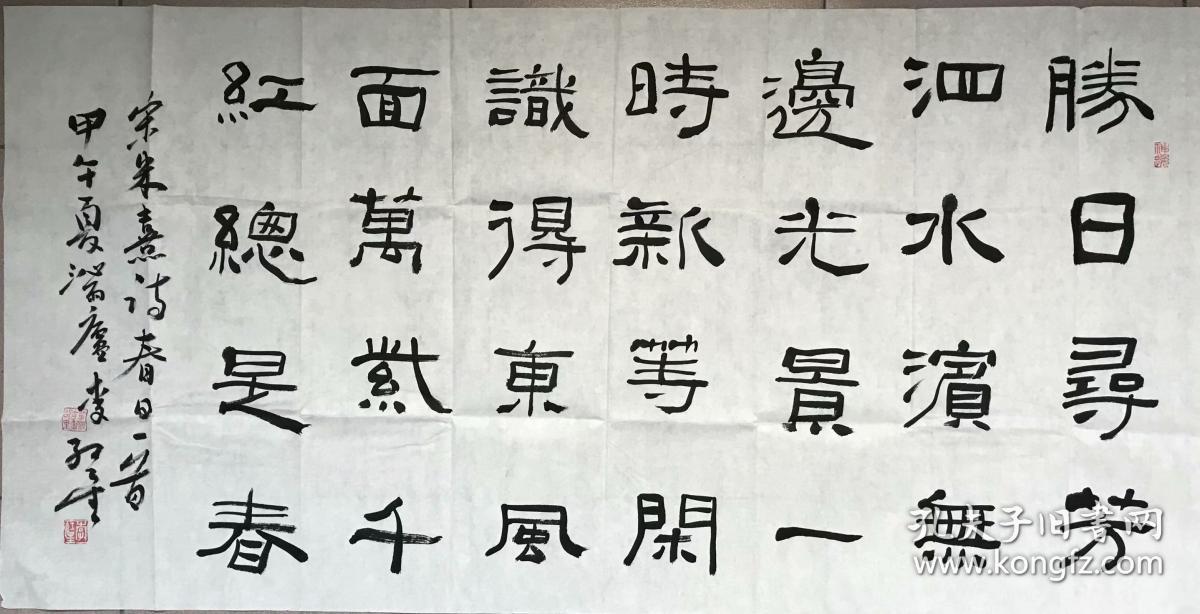 勝日尋芳
泗水濱無
邊光景一
時新等閑
識得東風
面萬紫千
紅總是春
宋朱熹詩春日一首
甲午夏
孔夫子旧书网
www.kongfz.com